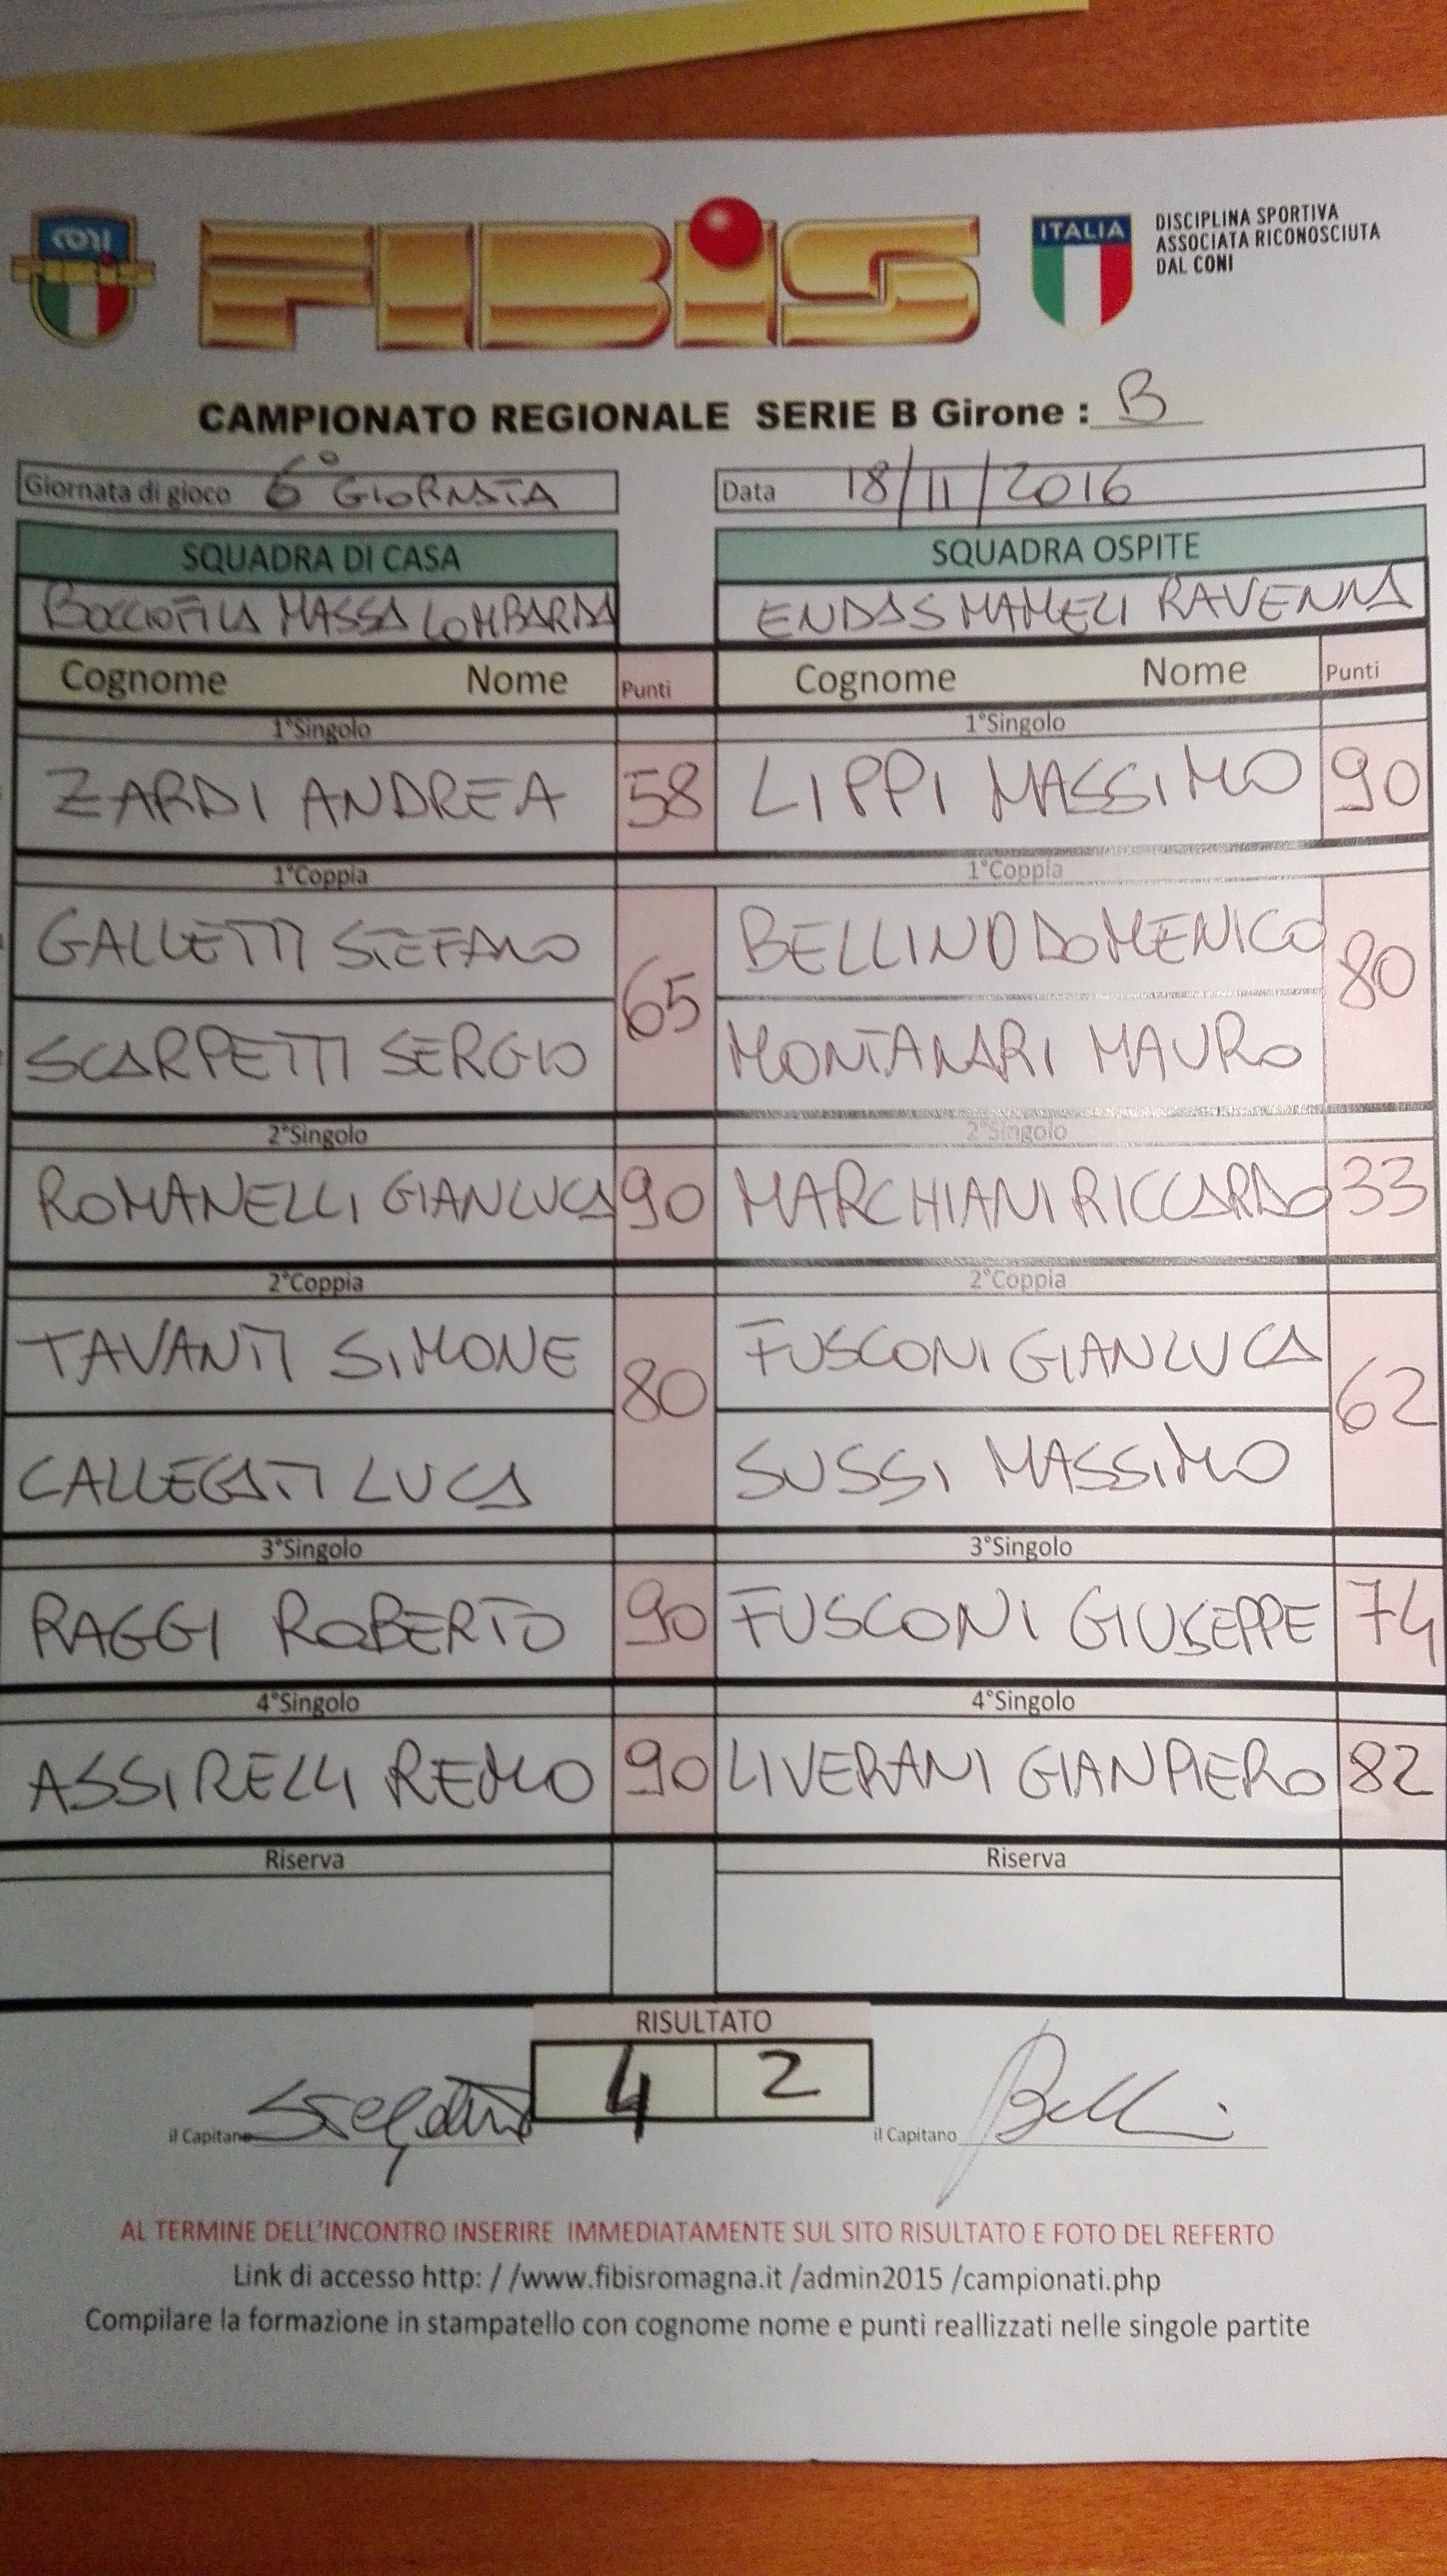 CONI
FIBiS
ITALIA
DISCIPLINA SPORTIVA
ASSOCIATA RICONOSCIUTA
DAL CONI
CAMPIONATO REGIONALE SERIE B Girone : B
Giornata di gioco 6° GIORNATA Data 18/11/2016
SQUADRA DI CASA SQUADRA OSPITE
BOCCIOFILA MASSA LOMBARDA ENDAS MAMELI RAVENNA
Cognome Nome Punti Cognome Nome Punti
1°Singolo 1°Singolo
ZARDI ANDREA 58 LIPPI MASSIMO 90
1°Coppia 1°Coppia
GALLETTI STEFANO 65 BELLINO DOMENICO 80
SCARPETTI SERGIO MONTANARI MAURO
2°Singolo 2°Singolo
ROMANELLI GIANLUCA 90 MARCHIANI RICCARDO 33
2°Coppia 2°Coppia
TAVANTI SIMONE 80 FUSCONI GIANLUCA 62
CALLEGATI LUCA SUSSI MASSIMO
3°Singolo 3°Singolo
RAGGI ROBERTO 90 FUSCONI GIUSEPPE 74
4°Singolo 4°Singolo
ASSIRELLI REMO 90 LIVERANI GIANPIERO 82
Riserva Riserva
RISULTATO
4 2
il Capitano il Capitano
AL TERMINE DELL'INCONTRO INSERIRE IMMEDIATAMENTE SUL SITO RISULTATO E FOTO DEL REFERTO
Link di accesso http: / /www.fibisromagna.it /admin2015 /campionati.php
Compilare la formazione in stampatello con cognome nome e punti reallizzati nelle singole partite